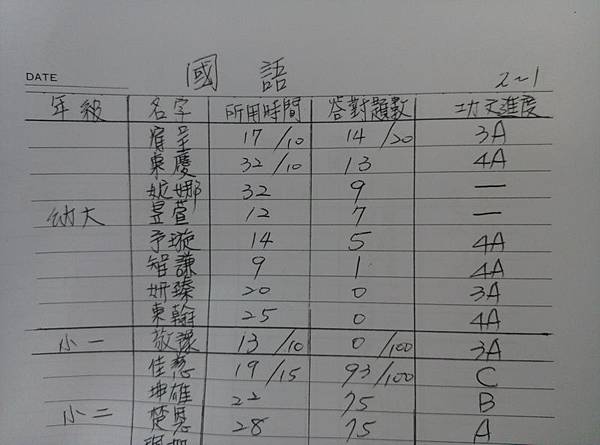 國語
DATE
2~1
年級 名字 所用時間 答對題數 功文進度
17/10 14/20 3A
東慶 32/10 13 4A
妮娜 32 9 —
幼大 昱萱 12 7 —
予璇 14 5 4A
智謙 9 1 4A
妍臻 20 0 3A
東翰 25 0 4A
小一 敬濠 13/10 0/100 3A
佳慈 19/15 93/100 C
坤雄 22 75 B
小二 楚恩 28 75 A